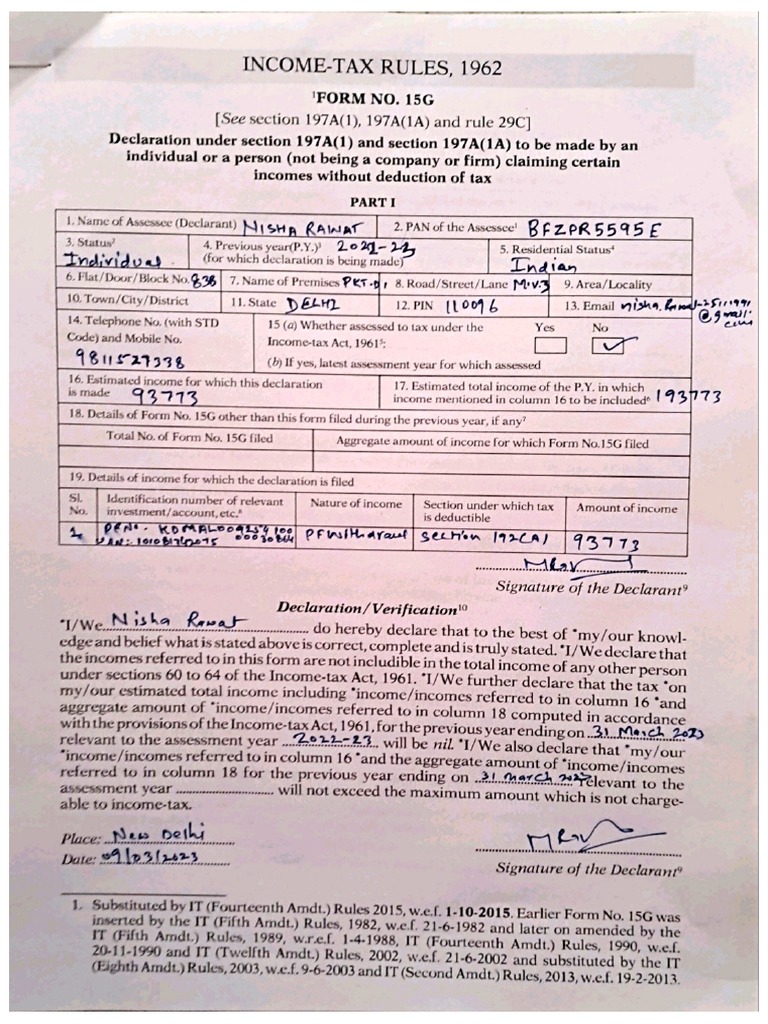 INCOME-TAX RULES, 1962
¹FORM NO. 15G
[See section 197A(1), 197A(1A) and rule 29C]
Declaration under section 197A(1) and section 197A(1A) to be made by an
individual or a person (not being a company or firm) claiming certain
incomes without deduction of tax
PART I
1. Name of Assessee (Declarant) NISHA RAWAT 2. PAN of the Assessee¹ BFZPR5595E
3. Status² Individual 4. Previous year(P.Y.)³ 2022-23 (for which declaration is being made) 5. Residential Status⁴ Indian
6. Flat/Door/Block No. 838 7. Name of Premises PKT-D1 8. Road/Street/Lane M.V.3 9. Area/Locality
10. Town/City/District 11. State DELHI 12. PIN 110096 13. Email @gmail.com
14. Telephone No. (with STD Code) and Mobile No. 9811527338 15 (a) Whether assessed to tax under the Income-tax Act, 1961⁵: Yes No ✓
(b) If yes, latest assessment year for which assessed
16. Estimated income for which this declaration is made 93773 17. Estimated total income of the P.Y. in which income mentioned in column 16 to be included⁶ 193773
18. Details of Form No. 15G other than this form filed during the previous year, if any⁷
Total No. of Form No. 15G filed Aggregate amount of income for which Form No.15G filed
19. Details of income for which the declaration is filed
Sl. No. Identification number of relevant investment/account, etc.⁸ Nature of income Section under which tax is deductible Amount of income
1. PF withdrawl section 192(A) 93773
MRawat
Signature of the Declarant⁹
Declaration/Verification¹⁰
*I/We Nisha Rawat do hereby declare that to the best of *my/our knowl-
edge and belief what is stated above is correct, complete and is truly stated. *I/We declare that
the incomes referred to in this form are not includible in the total income of any other person
under sections 60 to 64 of the Income-tax Act, 1961. *I/We further declare that the tax *on
my/our estimated total income including *income/incomes referred to in column 16 *and
aggregate amount of *income/incomes referred to in column 18 computed in accordance
with the provisions of the Income-tax Act, 1961, for the previous year ending on 31 March 2023
relevant to the assessment year 2022-23 will be nil. *I/We also declare that *my/our
*income/incomes referred to in column 16 *and the aggregate amount of *income/incomes
referred to in column 18 for the previous year ending on 31 March relevant to the
assessment year will not exceed the maximum amount which is not charge-
able to income-tax.
Place: New Delhi
Date: 09/03/2023
Signature of the Declarant⁹
1. Substituted by IT (Fourteenth Amdt.) Rules 2015, w.e.f. 1-10-2015. Earlier Form No. 15G was
inserted by the IT (Fifth Amdt.) Rules, 1982, w.e.f. 21-6-1982 and later on amended by the
IT (Fifth Amdt.) Rules, 1989, w.r.e.f. 1-4-1988, IT (Fourteenth Amdt.) Rules, 1990, w.e.f.
20-11-1990 and IT (Twelfth Amdt.) Rules, 2002, w.e.f. 21-6-2002 and substituted by the IT
(Eighth Amdt.) Rules, 2003, w.e.f. 9-6-2003 and IT (Second Amdt.) Rules, 2013, w.e.f. 19-2-2013.